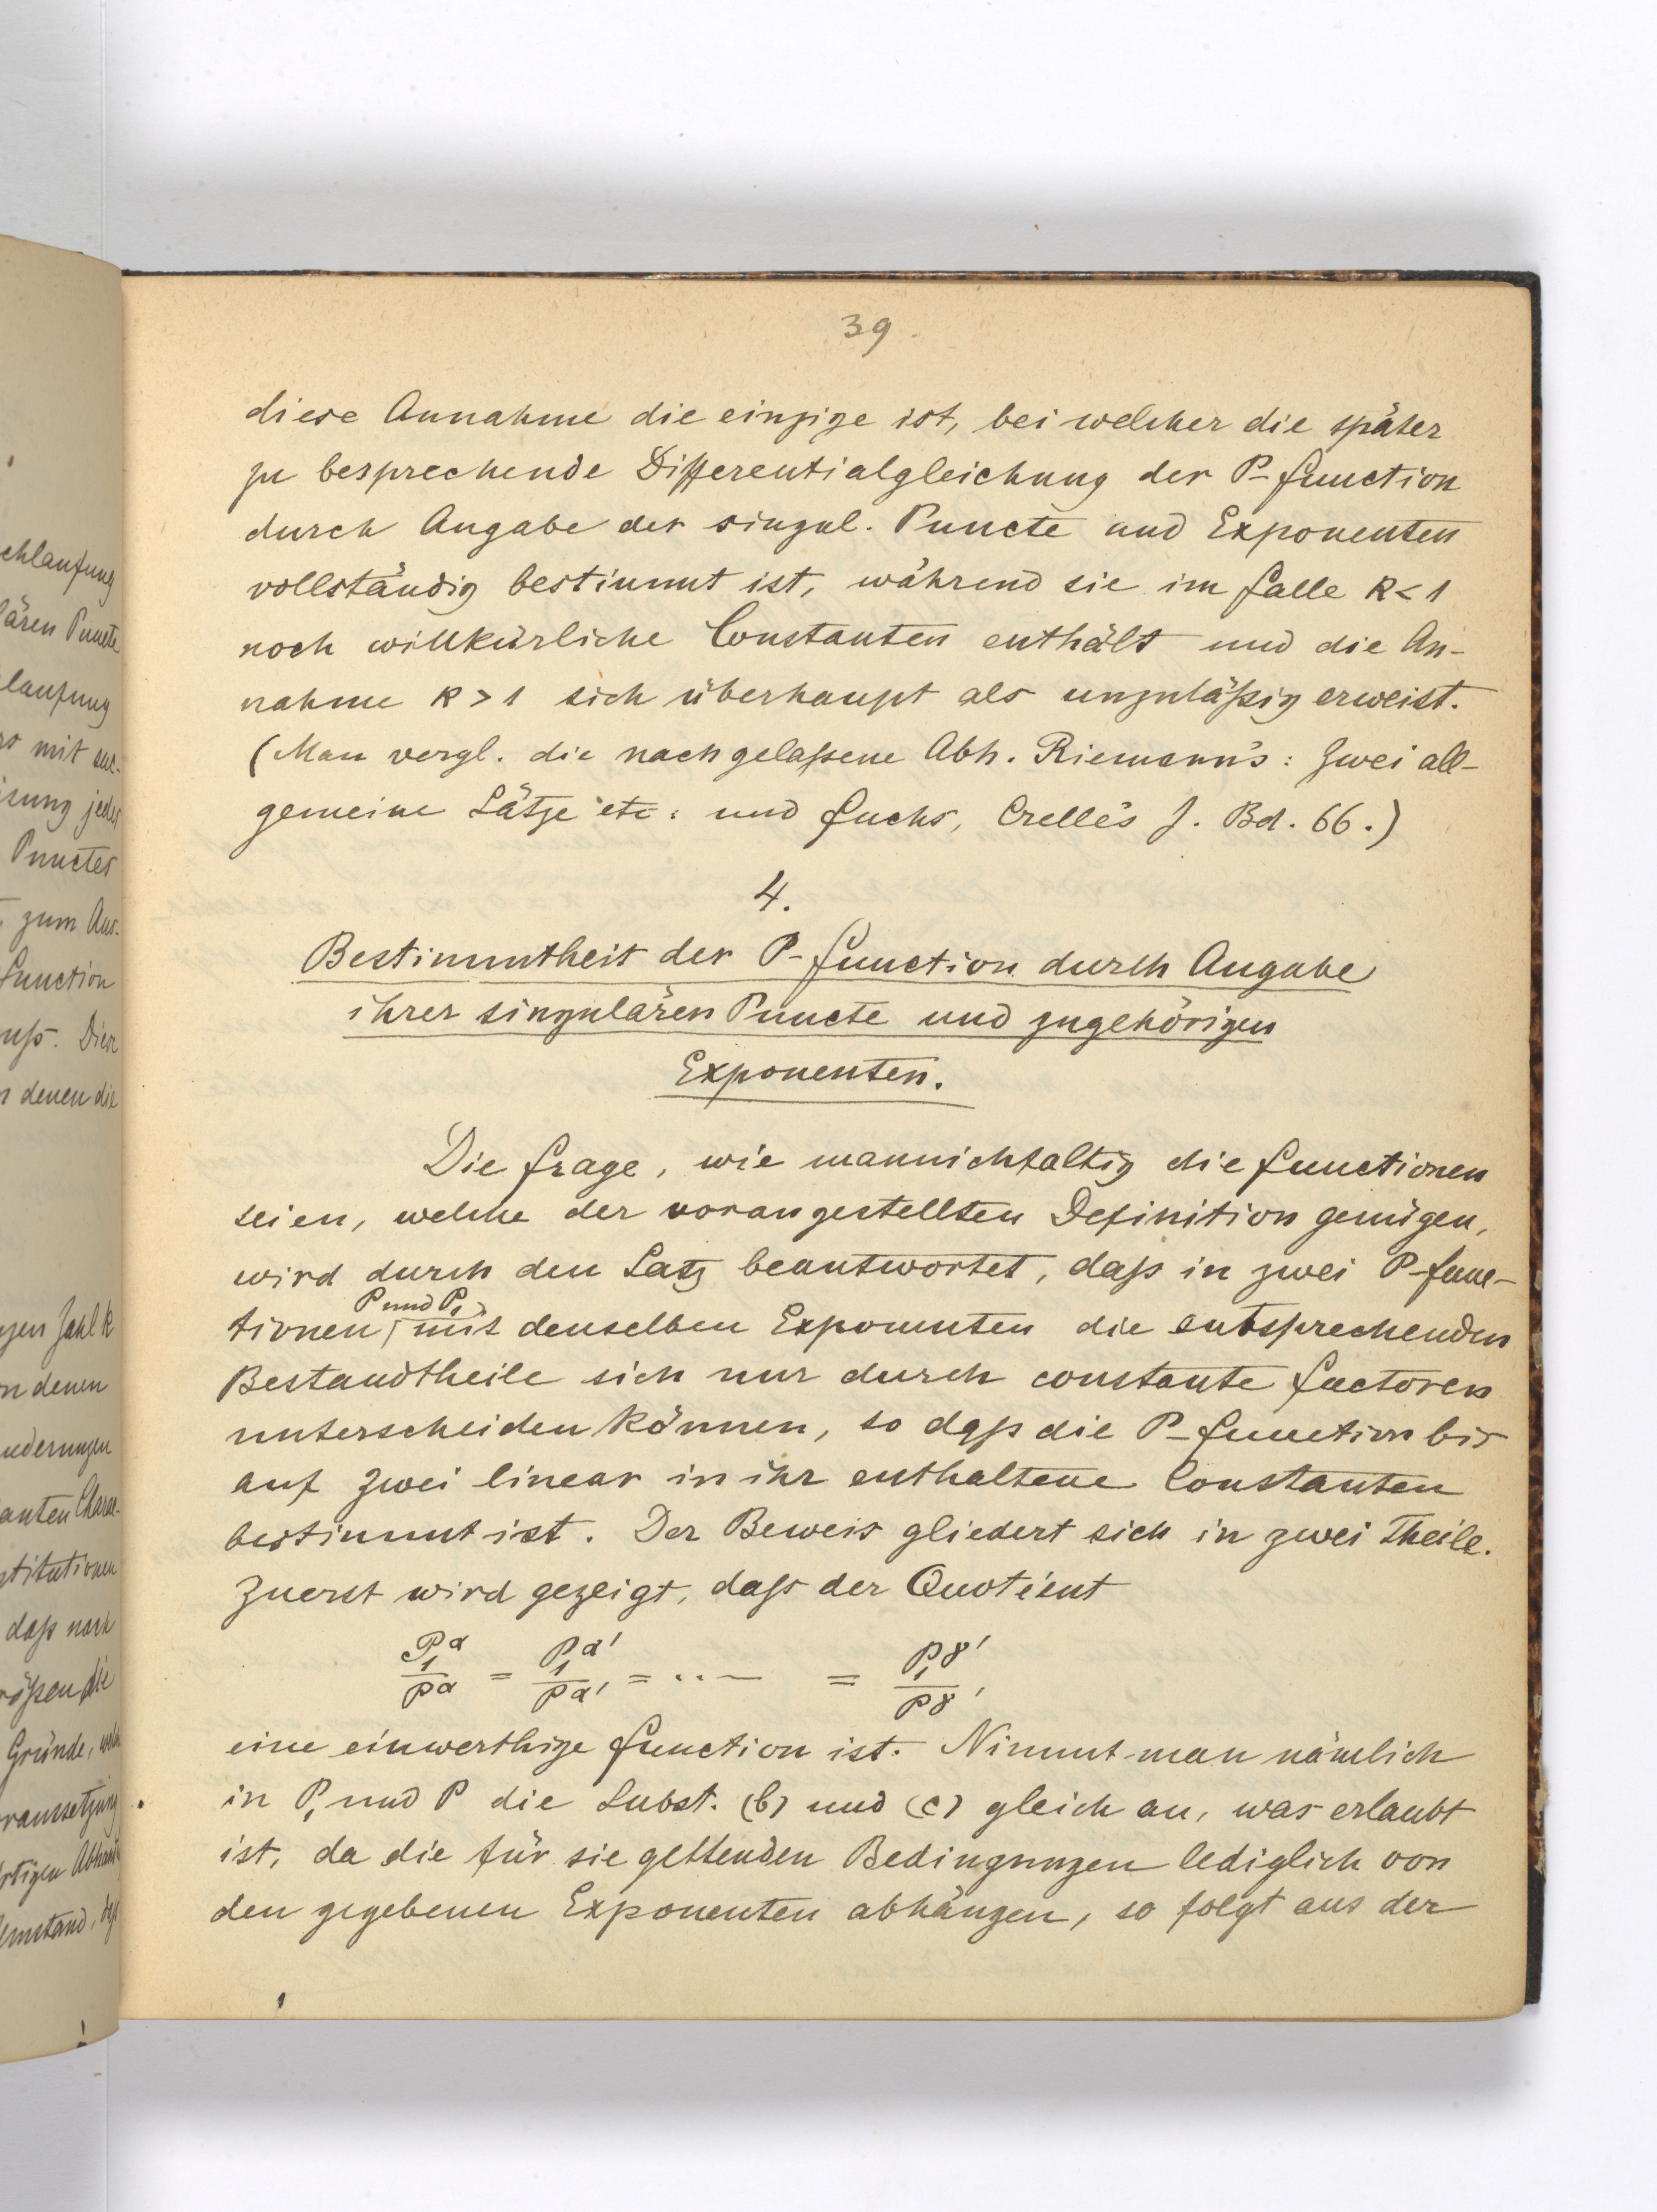 39.
diese Annahme die einzige ist, bei welcher die später
zu besprechende Differentialgleichung der P-function
durch Angabe der singul. Puncte und Exponenten
vollständig bestimmt ist, während sie im falle k < 1
noch willkürliche Constanten enthält und die An-
nahme k > 1 sich überhaupt als unzuläßig erweist.
(Man vergl. die nachgelaßene Abh. Riemann's: Zwei all-
gemeine Sätze etc: und Fuchs, Crelle's J. Bd. 66.)
4.
Bestimmtheit der P-function durch Angabe
ihrer singulären Puncte und zugehörigen
Exponenten.
Die Frage, wie mannichfaltig die functionen
seien, welche der vorangestellten Definition genügen,
wird durch den Satz beantwortet, daß in zwei P-func-
P und P₁
tionen, mit denselben Exponenten die entsprechenden
Bestandtheile sich nur durch constante factoren
unterscheiden können, so daß die P-function bis
auf zwei linear in ihr enthaltene Constanten
bestimmt ist. Der Beweis gliedert sich in zwei Theile.
Zuerst wird gezeigt, daß der Quotient
P₁^α / P^α = P₁^α' / P^α' = ... = P₁^γ' / P^γ'
eine einwerthige function ist. Nimmt man nämlich
in P₁ und P die Subst. (b) und (c) gleich an, was erlaubt
ist, da die für sie geltenden Bedingungen lediglich von
den gegebenen Exponenten abhängen, so folgt aus der
chlaufung
lären Puncte
laufung
mit
jedes
Punctes
zum Aus-
function
uß. Diese
denen die
gen Zahl k
n denen
nderungen
anten Charac-
stitutionen
daß nach
rößen die
Gründe,
raussetzung
rtigen